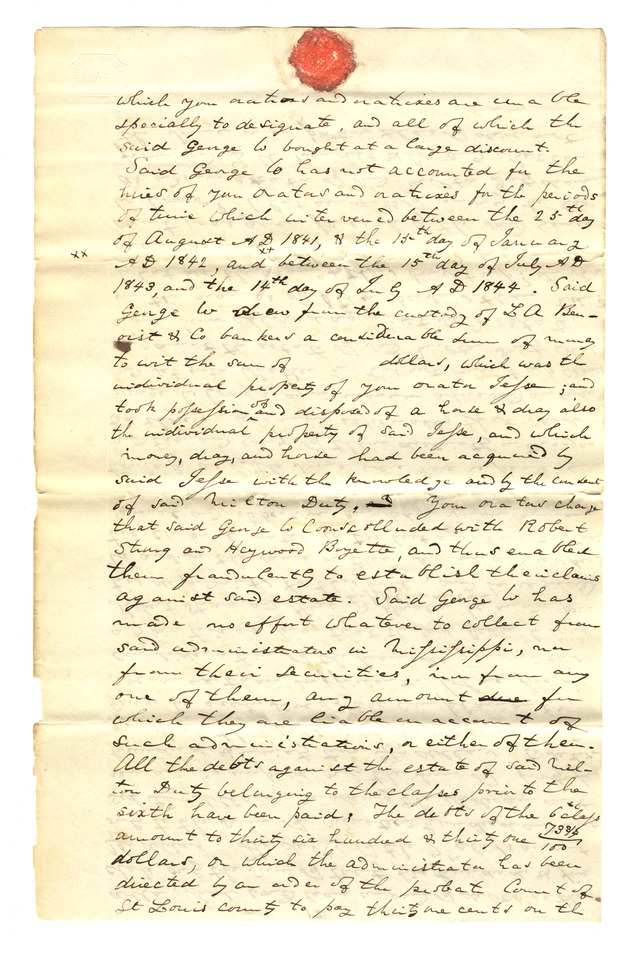 which your orators and oratrixes are unable
specially to designate, and all of which the
said George W bought at a large discount.
Said George W has not accounted for the
hires of your orators and oratrixes for the periods
of time which intervened between the 25th day
of August AD 1841, & the 15th day of January
xx AD 1842, and xt between the 15th day of July AD
1843, and the 14th day of July AD 1844. Said
George W drew from the custody of L A Ben-
oist & Co bankers a considerable sum of money
to wit the sum of dollars, which was the
individual property of your orator Jesse; and
took possession of and disposed of a horse & dray also
the individual property of said Jesse, and which
money, dray, and horse had been acquired by
said Jesse with the knowledge and by the consent
of said Milton Duty. Your orators charge
that said George W Coons colluded with Robert
Strong and Heywood Boyette, and thus enabled
them fraudulently to establish their claims
against said estate. Said George W has
made no effort whatever to collect from
said administrators in Mississippi, nor
from their securities, nor from any
one of them, any amount due for
which they are liable on account of
such administrations, or either of them.
All the debts against the estate of said Mil-
ton Duty belonging to the classes prior to the
sixth have been paid; The debts of the 6th class
amount to thirty six hundred & thirty one
dollars, on which the administrator has been
directed by an order of the probate Court of
St Louis county to pay thirty one cents on the